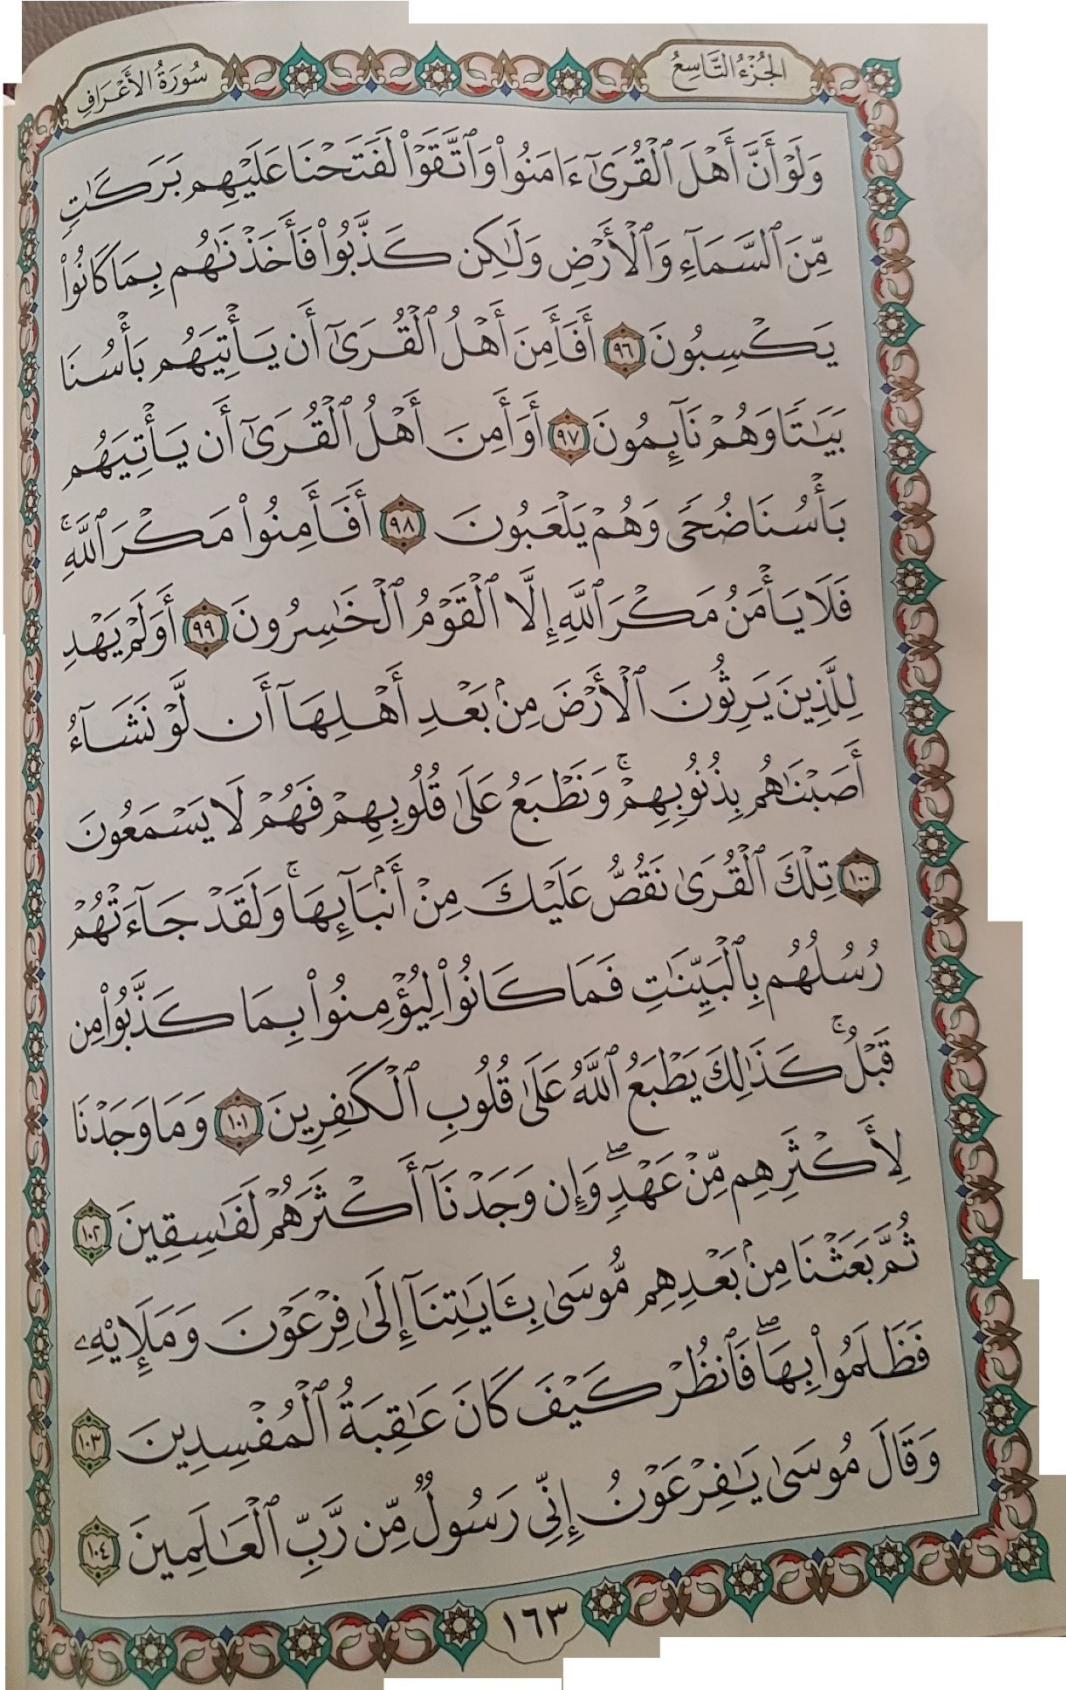 الجُزْءُ التَّاسِعُ
سُورَةُ الأَعْرَافِ
وَلَوْ أَنَّ أَهْلَ ٱلْقُرَىٰٓ ءَامَنُوا۟ وَٱتَّقَوْا۟ لَفَتَحْنَا عَلَيْهِم بَرَكَٰتٍ
مِّنَ ٱلسَّمَآءِ وَٱلْأَرْضِ وَلَٰكِن كَذَّبُوا۟ فَأَخَذْنَٰهُم بِمَا كَانُوا۟
يَكْسِبُونَ ٩٦ أَفَأَمِنَ أَهْلُ ٱلْقُرَىٰٓ أَن يَأْتِيَهُم بَأْسُنَا
بَيَٰتًا وَهُمْ نَآئِمُونَ ٩٧ أَوَأَمِنَ أَهْلُ ٱلْقُرَىٰٓ أَن يَأْتِيَهُم
بَأْسُنَا ضُحًى وَهُمْ يَلْعَبُونَ ٩٨ أَفَأَمِنُوا۟ مَكْرَ ٱللَّهِ ۚ
فَلَا يَأْمَنُ مَكْرَ ٱللَّهِ إِلَّا ٱلْقَوْمُ ٱلْخَٰسِرُونَ ٩٩ أَوَلَمْ يَهْدِ
لِلَّذِينَ يَرِثُونَ ٱلْأَرْضَ مِنۢ بَعْدِ أَهْلِهَآ أَن لَّوْ نَشَآءُ
أَصَبْنَٰهُم بِذُنُوبِهِمْ ۚ وَنَطْبَعُ عَلَىٰ قُلُوبِهِمْ فَهُمْ لَا يَسْمَعُونَ
١٠٠ تِلْكَ ٱلْقُرَىٰ نَقُصُّ عَلَيْكَ مِنْ أَنۢبَآئِهَا ۚ وَلَقَدْ جَآءَتْهُمْ
رُسُلُهُم بِٱلْبَيِّنَٰتِ فَمَا كَانُوا۟ لِيُؤْمِنُوا۟ بِمَا كَذَّبُوا۟ مِن
قَبْلُ ۚ كَذَٰلِكَ يَطْبَعُ ٱللَّهُ عَلَىٰ قُلُوبِ ٱلْكَٰفِرِينَ ١٠١ وَمَا وَجَدْنَا
لِأَكْثَرِهِم مِّنْ عَهْدٍ ۖ وَإِن وَجَدْنَآ أَكْثَرَهُمْ لَفَٰسِقِينَ ١٠٢
ثُمَّ بَعَثْنَا مِنۢ بَعْدِهِم مُّوسَىٰ بِـَٔايَٰتِنَآ إِلَىٰ فِرْعَوْنَ وَمَلَإِي۟هِۦ
فَظَلَمُوا۟ بِهَا ۖ فَٱنظُرْ كَيْفَ كَانَ عَٰقِبَةُ ٱلْمُفْسِدِينَ ١٠٣
وَقَالَ مُوسَىٰ يَٰفِرْعَوْنُ إِنِّى رَسُولٌ مِّن رَّبِّ ٱلْعَٰلَمِينَ ١٠٤
١٦٣